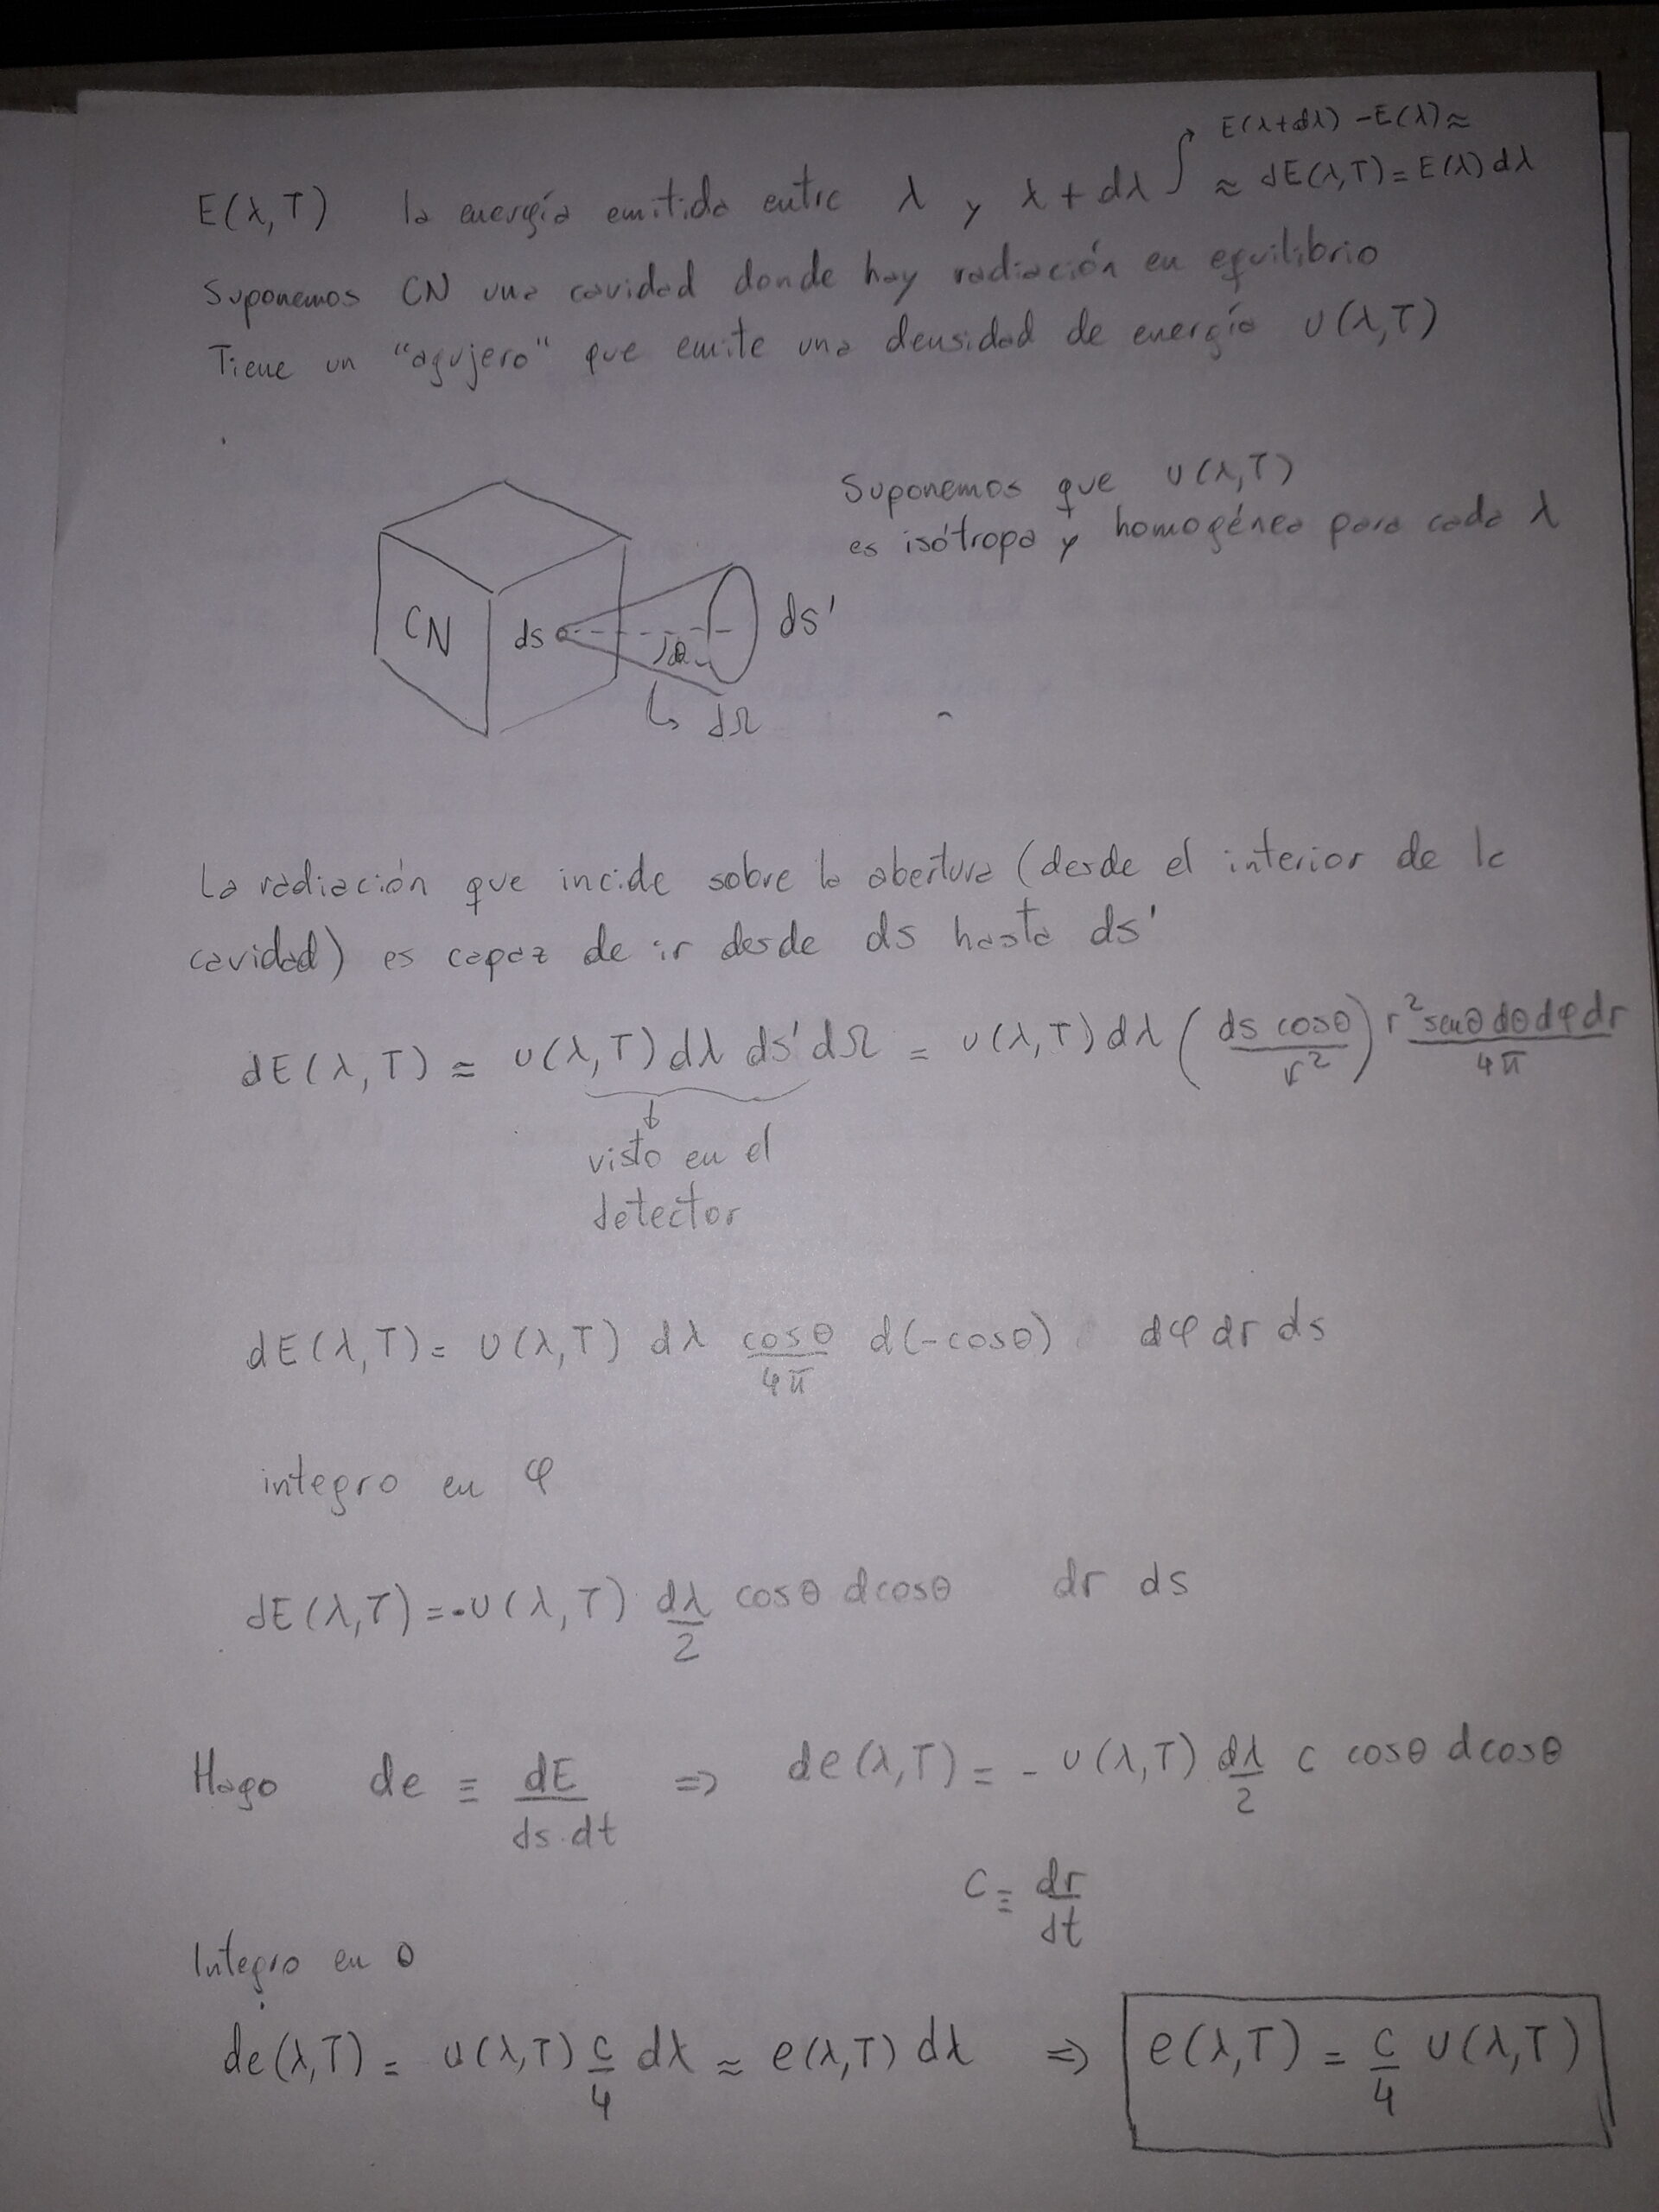 E(λ+dλ) -E(λ)≈
E(λ,T) la energía emitida entre λ y λ+dλ ≈ dE(λ,T)=E(λ)dλ
Suponemos CN una cavidad donde hay radiación en equilibrio
Tiene un "agujero" que emite una densidad de energía U(λ,T)
Suponemos que U(λ,T)
es isótropa y homogénea para cada λ
CN ds dθ ds'
dΩ
La radiación que incide sobre la abertura (desde el interior de la
cavidad) es capaz de ir desde ds hasta ds'
dE(λ,T) = U(λ,T) dλ ds' dΩ = U(λ,T) dλ (ds cosθ / r²) r² senθ dθ dφ dr / 4π
visto en el
detector
dE(λ,T) = U(λ,T) dλ cosθ/4π d(-cosθ) dφ dr ds
integro en φ
dE(λ,T) = -U(λ,T) dλ/2 cosθ dcosθ dr ds
Hago de ≡ dE/ds·dt ⇒ de(λ,T) = - U(λ,T) dλ/2 c cosθ dcosθ
C ≡ dr/dt
Integro en θ
de(λ,T) = u(λ,T) c/4 dλ ≈ e(λ,T) dλ ⇒ e(λ,T) = c/4 U(λ,T)